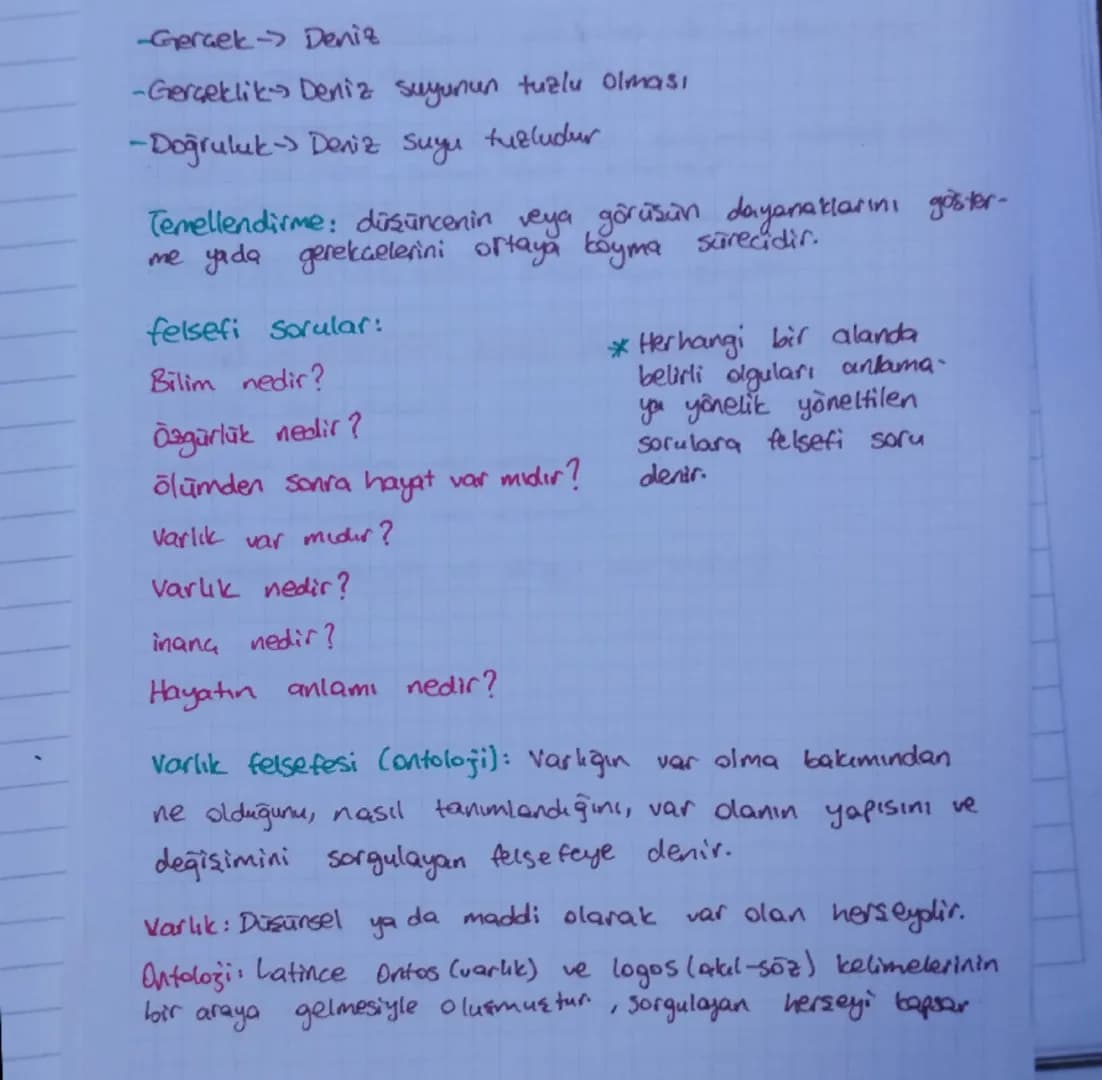 -Gerçek → Deniz
-Gerçeklik → Deniz suyunun tuzlu olması
-Doğruluk → Deniz suyu tuzludur
Temellendirme: düşüncenin veya görüşün dayanaklarını göster-
me yada gerekçelerini ortaya koyma sürecidir.
felsefi sorular:
Bilim nedir?
Özgürlük nedir?
ölümden sonra hayat var mıdır?
Varlık var mıdır?
Varlık nedir?
inanç nedir?
Hayatın anlamı nedir?
* Herhangi bir alanda
belirli olguları anlama-
ya yönelik yöneltilen
sorulara felsefi soru
denir.
Varlık felsefesi (ontoloji): Varlığın var olma bakımından
ne olduğunu, nasıl tanımlandığını, var olanın yapısını ve
değişimini sorgulayan felsefeye denir.
Varlık: Düşünsel ya da maddi olarak var olan herşeydir.
Ontoloji: Latince Ontos (varlık) ve logos (akıl-söz) kelimelerinin
bir araya gelmesiyle oluşmuştur. , sorgulayan herşeyi kapsar